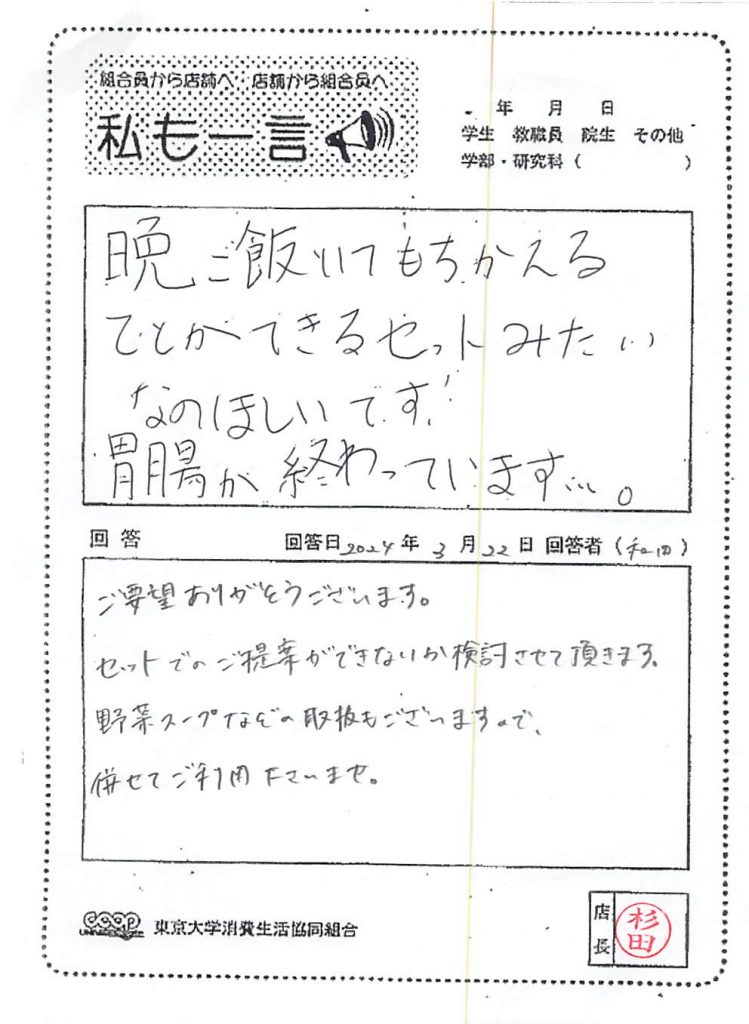 組合員から店舗へ 店舗から組合員へ
私も一言
年 月 日
学生 教職員 院生 その他
学部・研究科( )
晩ご飯いてもちかえる
ことができるセットみたい
なのほしいです!
胃腸が終わっています…。
回答 回答日2024年3月22日 回答者( )
ご要望ありがとうございます。
セットでのご提案ができないか検討させて頂きます。
野菜スープなどの取扱もございますので、
併せてご利用下さいませ。
coop 東京大学消費生活協同組合
店長
杉田